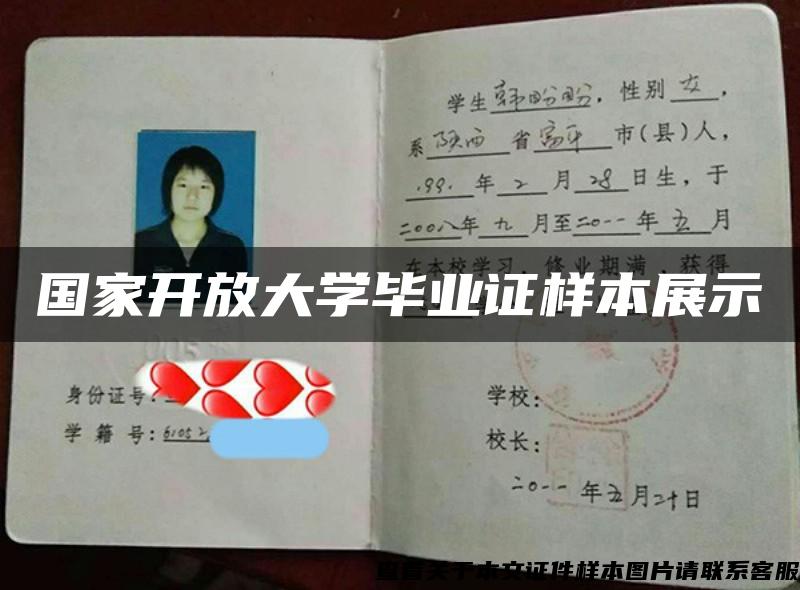 学生韩盼盼，性别女，
系陕西省富平市(县)人，
1991年2月28日生，于
二00八年九月至二0一一年五月
在本校学习，修业期满，获得
国家开放大学毕业证样本展示
身份证号：
学籍号：61052
学校：
校长：
二0一一年五月二十日
查看关于本文证件样本图片请联系客服